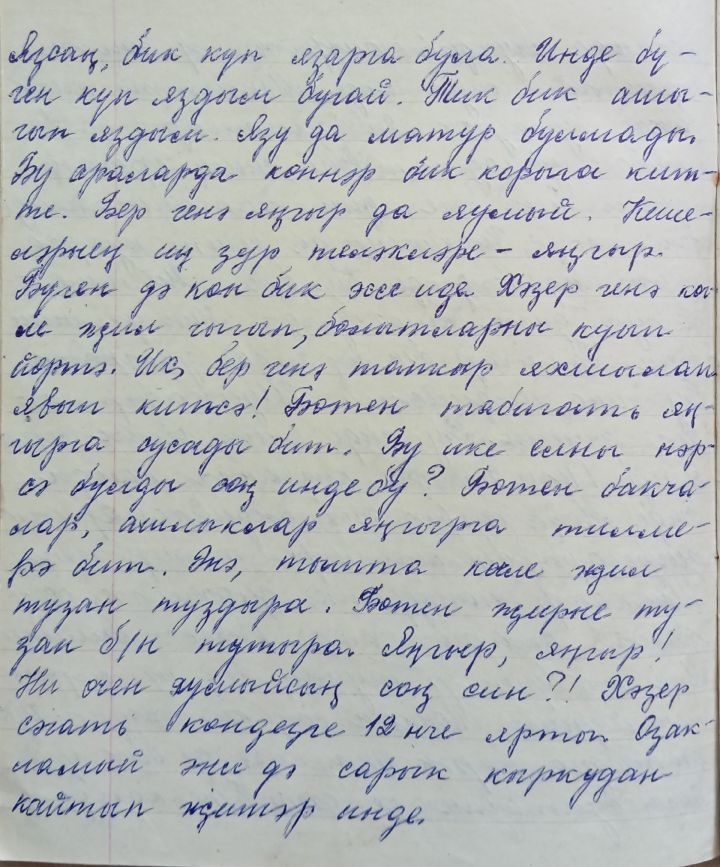 Язсаң, бик күп язарга була. Инде бү-
ген күп яздым бугай. Тик бик ашы-
гып яздым. Язу да матур булмады.
Бу араларда көннәр бик корыга кит-
те. Бер генә яңгыр да яумый. Кеше-
ләрнең иң зур теләкләре - яңгыр.
Бүген дә көн бик эссе иде. Хәзер генә көч-
ле җил чыгып, болытларны куып
йөртә. Их, бер генә тапкыр яхшылап
явып китсә! Бөтен табигать яң-
гырга сусады бит. Бу ике елны нәр-
сә булды соң инде бу? Бөтен бакча-
лар, ашлыклар яңгырга тилме-
рә бит. Әнә, тышта көчле җил
тузан туздыра. Бөтен җирне ту-
зан б/н тутыра. Яңгыр, яңгыр!
Ни өчен яумыйсың соң син?! Хәзер
сәгать көндезге 12 нче ярты. Озак-
ламый әни дә сарык кыркудан
кайтып җитәр инде.